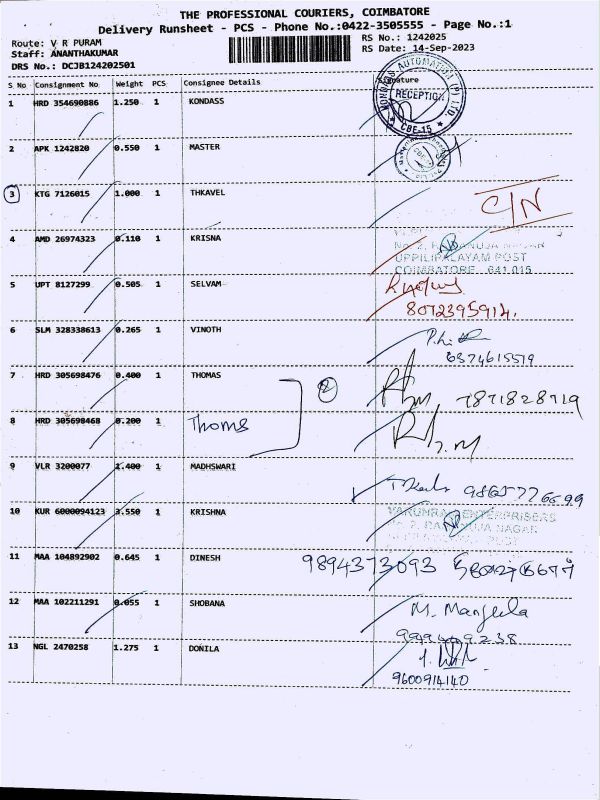 THE PROFESSIONAL COURIERS, COIMBATORE
Delivery Runsheet - PCS - Phone No.:0422-3505555 - Page No.:1
Route: V R PURAM
RS No.: 1242025
Staff: ANANTHAKUMAR
RS Date: 14-Sep-2023
DRS No.: DCJB124202501
S No Consignment No Weight PCS Consignee Details Signature
1 HRD 354690886 1.250 1 KONDASS
RECEPTION
CBE-15
2 APK 1242820 0.550 1 MASTER
3 KTG 7126015 1.000 1 THKAVEL C/N
4 AMD 26974323 0.110 1 KRISNA
UPPILIPALAYAM POST
COIMBATORE 641 015
5 UPT 8127299 0.505 1 SELVAM
8072395914.
6 SLM 328338613 0.265 1 VINOTH
6374615579
7 HRD 305698476 0.400 1 THOMAS 2 7871828719
8 HRD 305698468 0.200 1 Thoms
9 VLR 3200077 1.400 1 MADHSWARI
10 KUR 6000094123 3.550 1 KRISHNA
ENTERPRISERS
11 MAA 104892902 0.645 1 DINESH 9894373093
12 MAA 102211291 0.055 1 SHOBANA M. Manjula
13 NGL 2470258 1.275 1 DONILA
9600914140